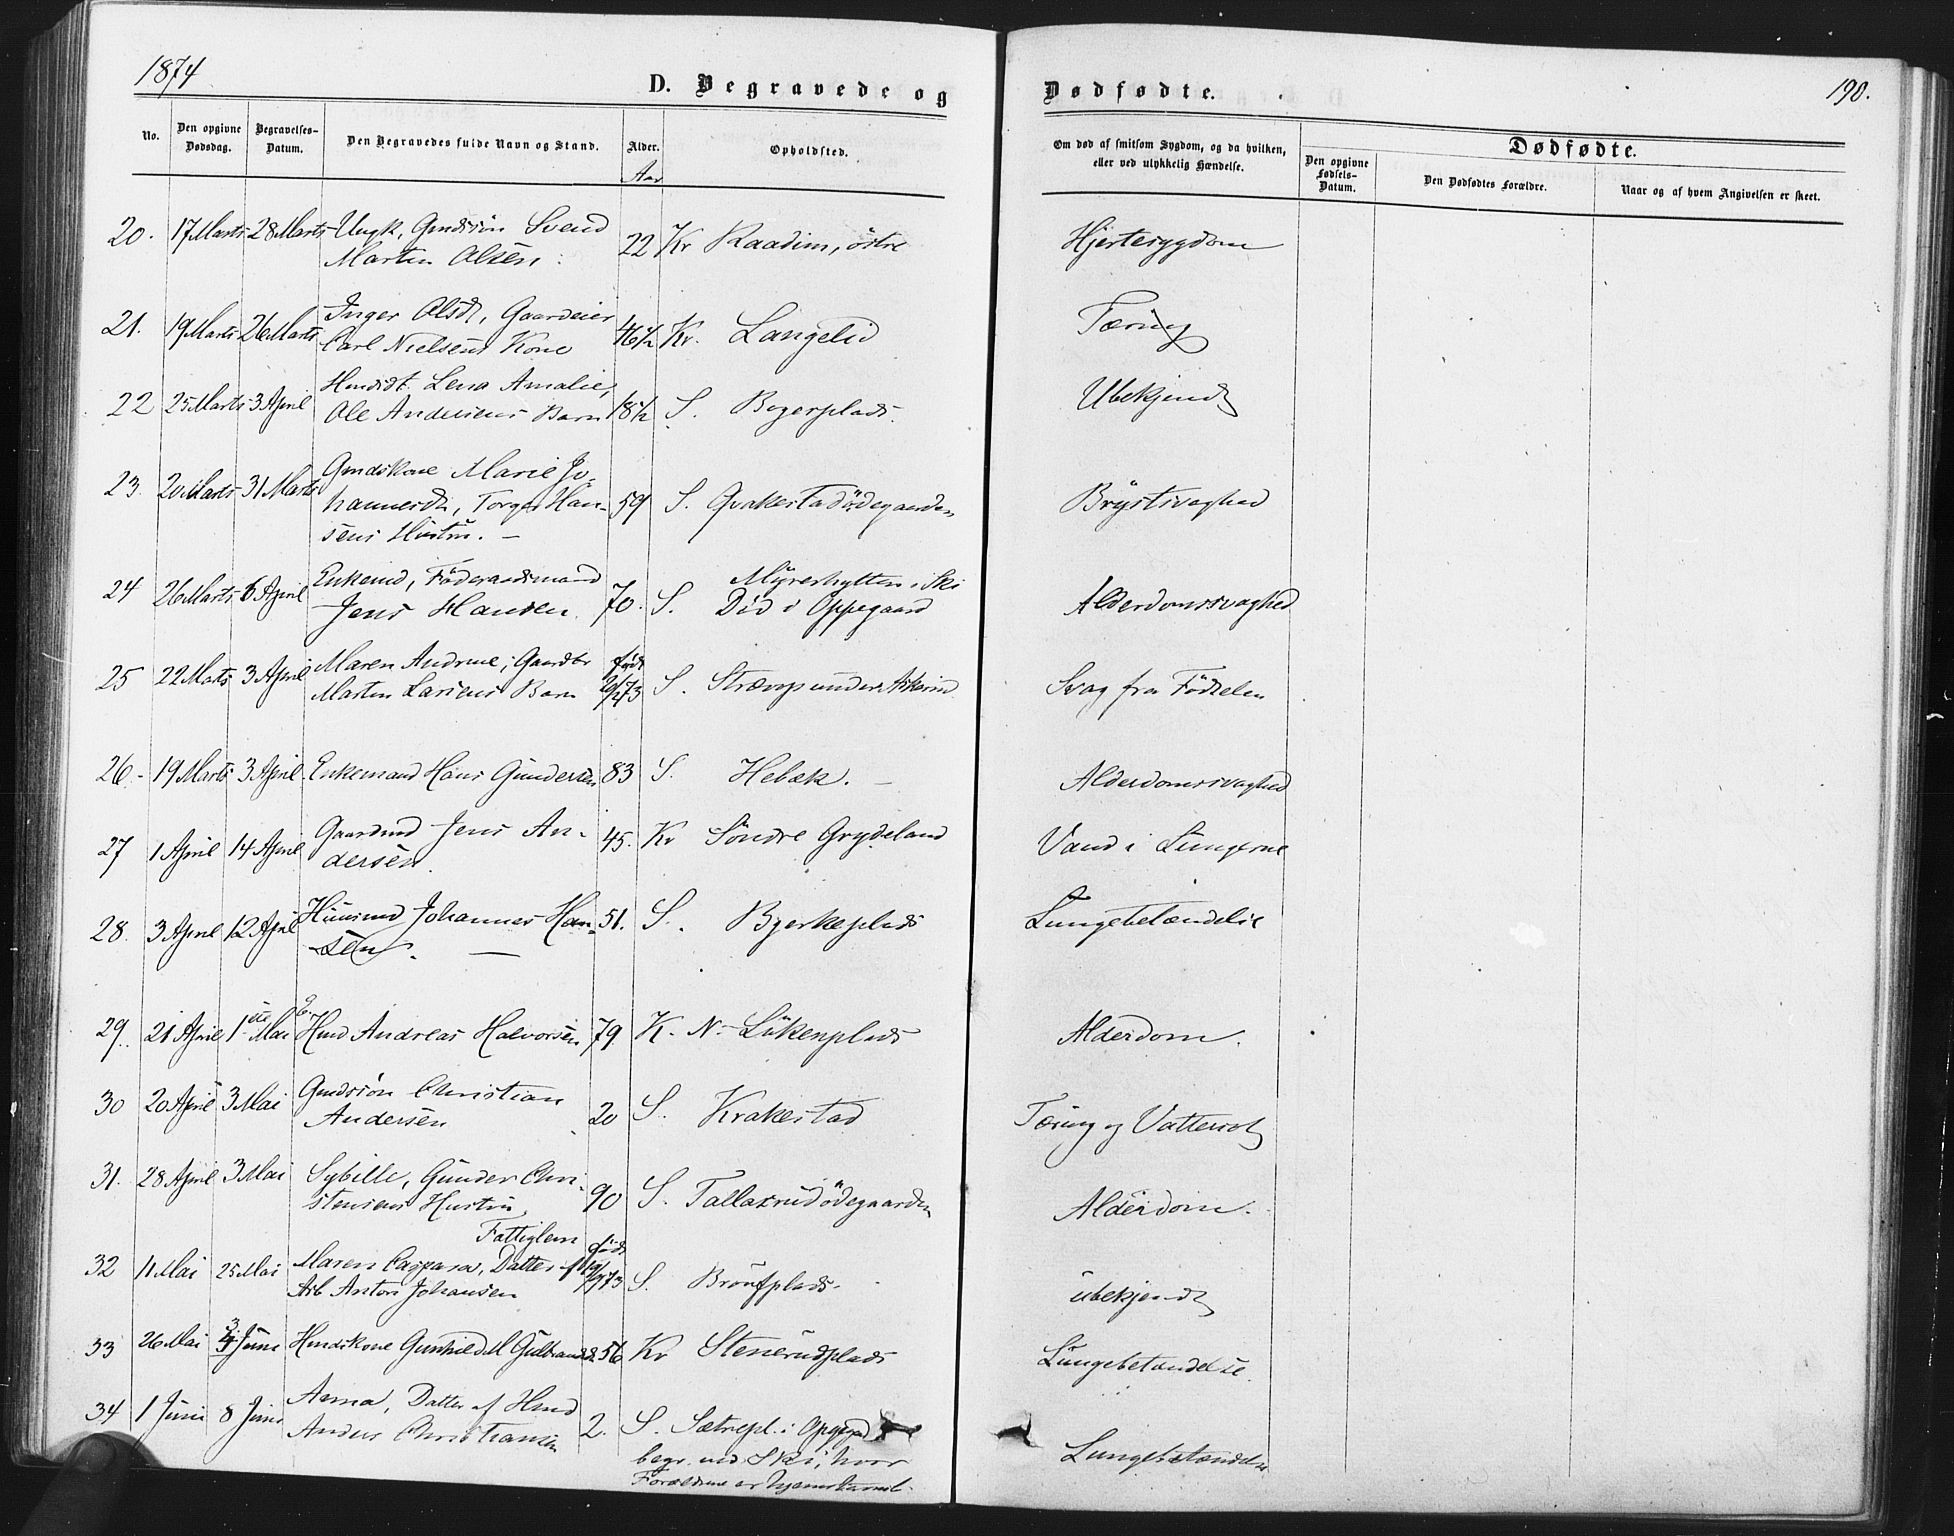 1874
D. Begravede og
Dødfødte.
190.
No.
Den opgivne Dødsdag.
Begravelses-Datum.
Den Begravedes fulde Navn og Stand.
Alder.
Aar
Opholdsted.
Om død af smitsom Sygdom, og da hvilken, eller ved ulykkelig Hændelse.
Dødfødte.
Den opgivne Fødsels-Datum.
Den Dødfødtes Forældre.
Naar og af hvem Angivelsen er skeet.
20. 17 Marts 28 Marts Ungk, Gmdssön Svend
Martin Olsen 22 Kr Raadim, östre Hjertesygdom
21. 19 Marts 26 Marts Inger Olsdt, Gaardeier
Carl Nielsens Kone 46½ Kr. Langelid Tæring
22 25 Marts 3 April Lena Amalie,
Ole Andersens Barn 18½ S. Plads Ubekjendt
23. 20 Marts 31 Marts Gmdskone Marie Jo-
hannesdt, Torger Han-
sens Hustru. 59 S. Brystsvaghed
24 26 Marts 6 April Enkemd, Föderaadsmand
Jens Hansen. 70. S. Myrerhytten i Ski
Död i Oppegaard Alderdomssvaghed
25 22 Marts 3 April Maren Andrine, Gaardbr
Martin Larsens Barn födt 73 S. under Askerud Svag fra Födselen
26 19 Marts 3 April Enkemand Hans Gundersen 83 S. Hebæk. Alderdomssvaghed
27 1 April 14 April Gaardmd Jens An-
dersen. 45. Kr Söndre Grydeland Vand i Lungerne
28. 3 April 12 April Huusmd Johannes Han-
sen. 51. S. Bjerkeplads Lungebetændelse
29. 21 April 1ste Mai Hmd Andreas Halvorsen 79 K. N. Lökenplads Alderdom.
30 20 April 3 Mai Gmdssön Christian
Andersen 20 S. Krakestad Tæring og Vattersot
31. 28 April 3 Mai Sybille, Gunder Chri-
stensens Hustru,
Fattiglem 90 S. Tallaksrudödegaarden Alderdom.
32 11 Mai 25 Mai Maren Caspara, Datter af
Arb Anton Johansen födt 73 S. plads. ubekjendt
33 26 Mai 3 Juni Hmdskone Gunhild M Gulbrandsd. 56 Kr Stenerudplads Lungebetændelse.
34 1 Juni 8 Juni Anna, Datter af Hmd
Anders Christiansen 2. S. Sætrepl. i Oppegd
begr. ved Ski, hvor
Forældrene er hjemstavnsb. Lungebetændelse